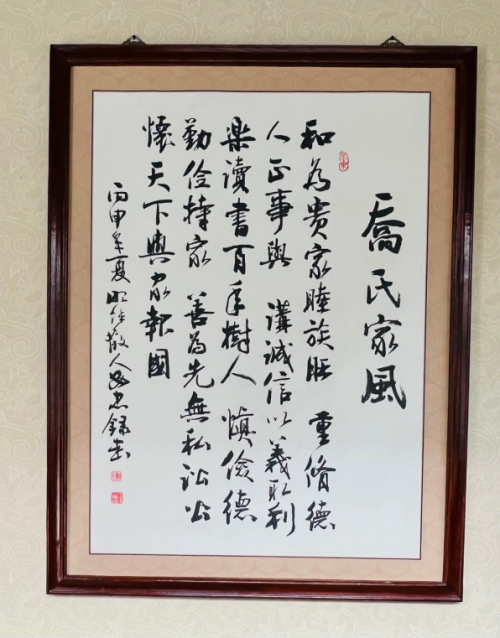 喬氏家風
和為贵家睦族旺 重脩德
人正事興 講誠信以義取利
樂讀書百年樹人 慎儉德
勤俭持家 善為先無私訟公
懷天下興家報國
丙申年夏